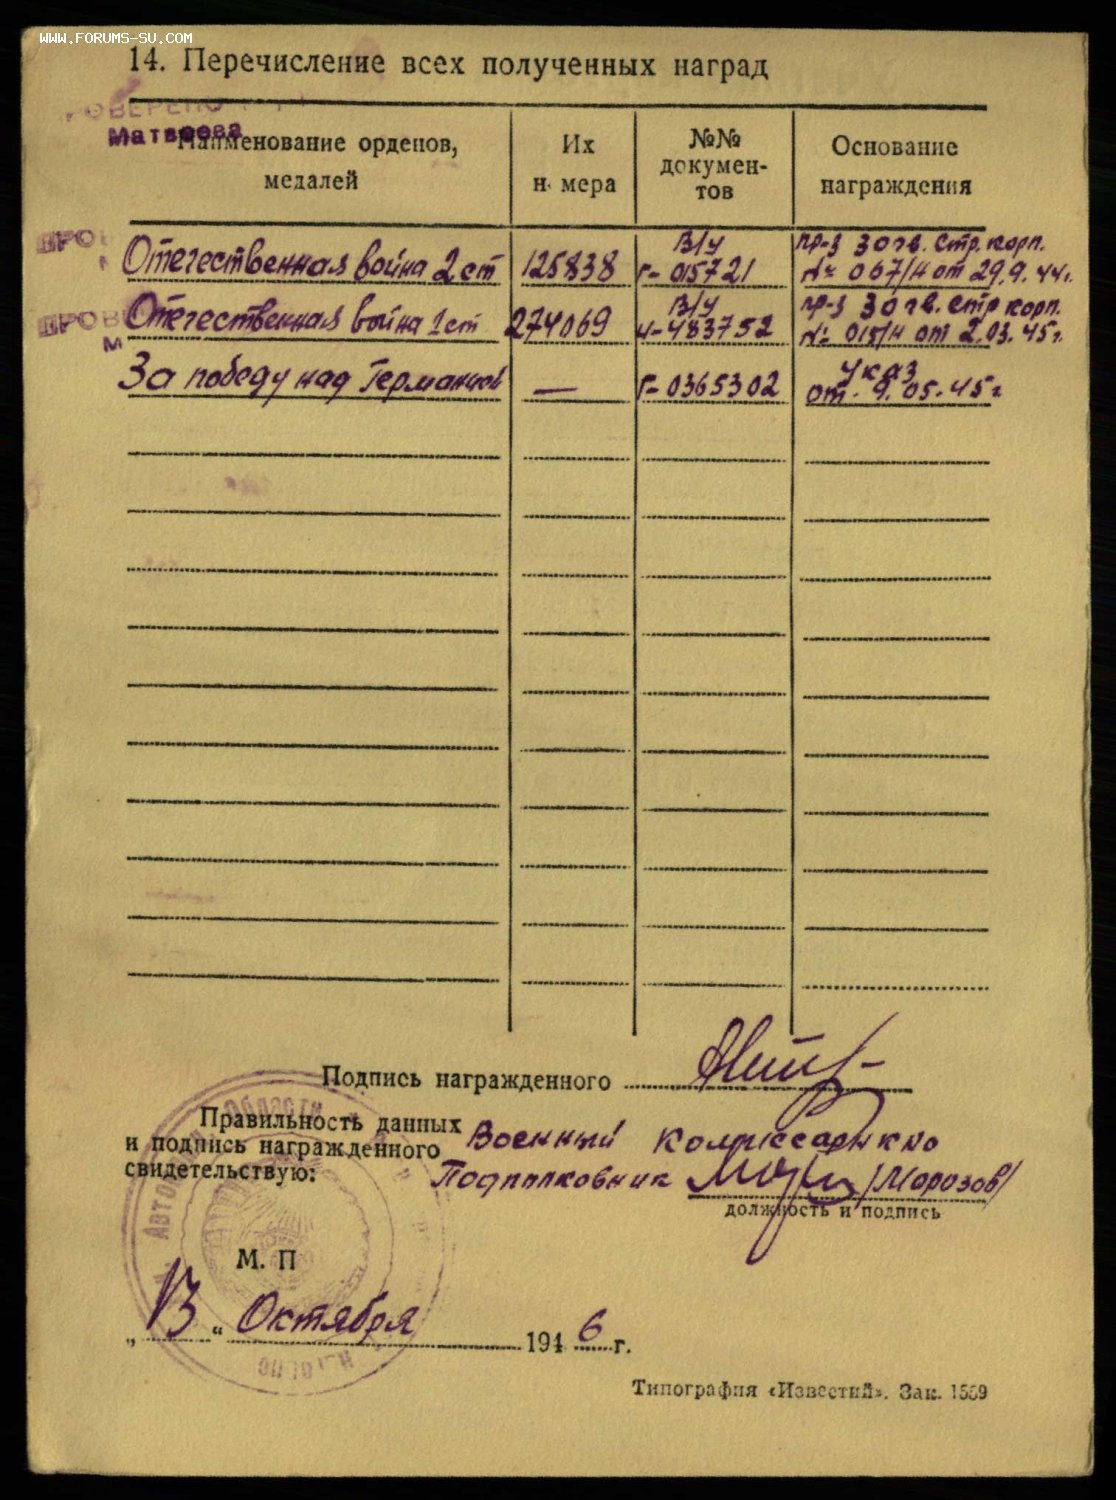 WWW.FORUMS-SU.COM
14. Перечисление всех полученных наград
Матвеева
Наименование орденов, медалей
Их номера
№№ документов
Основание награждения
Отечественная война 2 ст 125838 В/у Г-015721 пр-з 30 гв. стр. корп. № 067/н от 29.9.44г.
Отечественная война 1 ст 274069 В/у И-483752 пр-з 30 гв. стр корп. № 015/н от 2.03.45г.
За победу над Германией — Г-0365302 Указ от 9.05.45г.
Подпись награжденного
Правильность данных
и подпись награжденного Военный
свидетельствую: Подполковник /Морозов/
должность и подпись
М. П
„13“ Октября 1946 г.
Типография «Известий». Зак. 1559